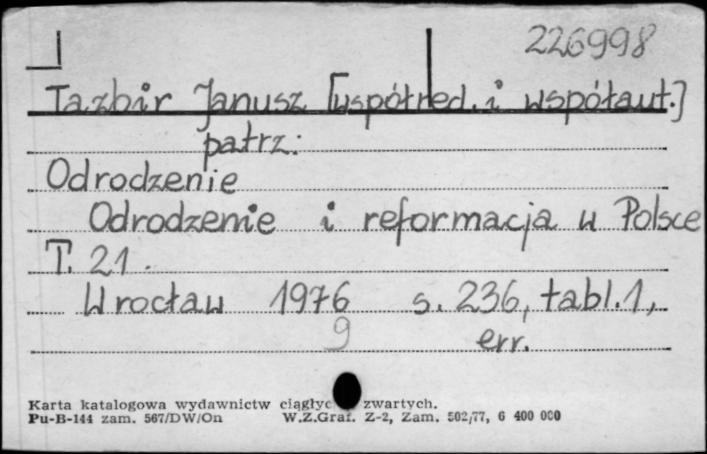 226998
Tazbir Janusz [współred. i współaut.]
patrz:
Odrodzenie
Odrodzenie i reformacja w Polsce
T. 21.
Wrocław 1976 s. 236, tabl. 1,
9 err.
Karta katalogowa wydawnictw ciągłyc zwartych.
Pu-B-144 zam. 567/DW/On W.Z.Graf. Z-2, Zam. 502/77, 6 400 000